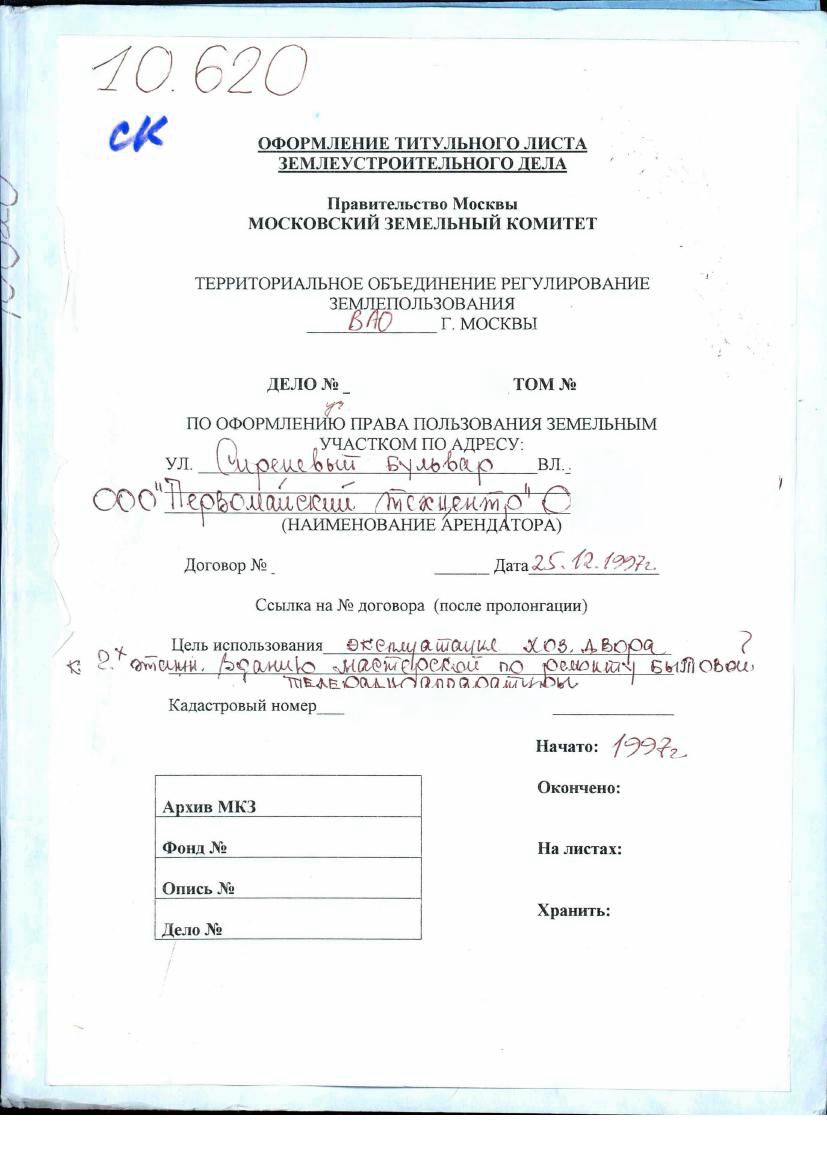 10.620
СК
ОФОРМЛЕНИЕ ТИТУЛЬНОГО ЛИСТА
ЗЕМЛЕУСТРОИТЕЛЬНОГО ДЕЛА
Правительство Москвы
МОСКОВСКИЙ ЗЕМЕЛЬНЫЙ КОМИТЕТ
ТЕРРИТОРИАЛЬНОЕ ОБЪЕДИНЕНИЕ РЕГУЛИРОВАНИЕ
ЗЕМЛЕПОЛЬЗОВАНИЯ
ВАО Г. МОСКВЫ
ДЕЛО № _ ТОМ №
ПО ОФОРМЛЕНИЮ ПРАВА ПОЛЬЗОВАНИЯ ЗЕМЕЛЬНЫМ
УЧАСТКОМ ПО АДРЕСУ:
УЛ. Сиреневый бульвар ВЛ.
ООО "Первомайский техцентр"
(НАИМЕНОВАНИЕ АРЕНДАТОРА)
Договор № _ ______ Дата 25.12.1997г.
Ссылка на № договора (после пролонгации)
Цель использования эксплуатация хоз. двора
к 2х этажн. зданию мастерской по ремонту бытовой
телерадиоаппаратуры
Кадастровый номер___
Начато: 1997г
Окончено:
Архив МКЗ
Фонд №
На листах:
Опись №
Хранить:
Дело №